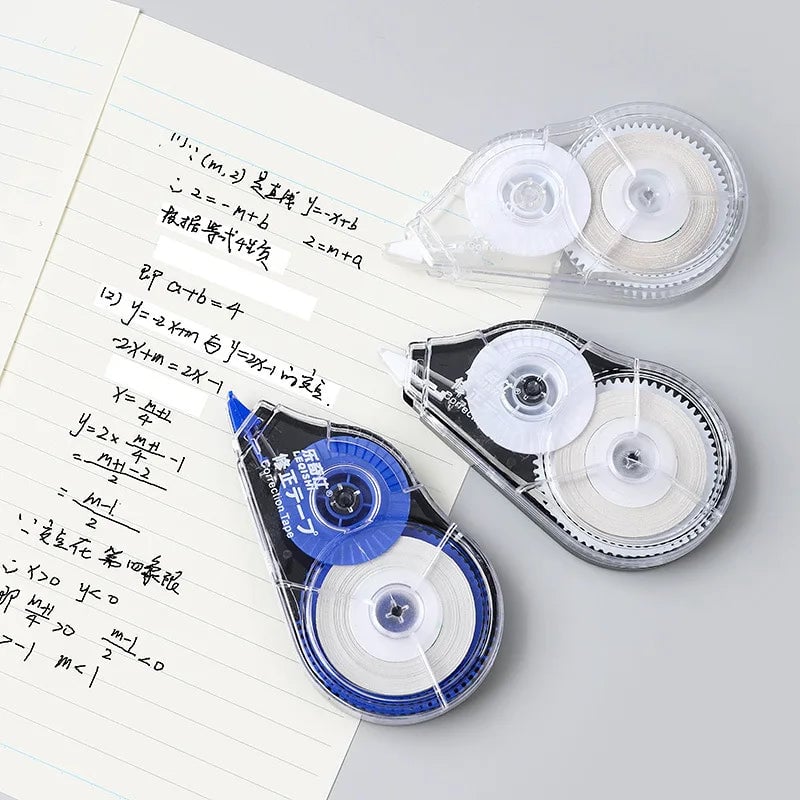 (m,2)是直线 y=-x+b
∴ 2=-m+b 2=m+a
根据等式性质
即 a+b=4
(2) y=-2x+m与y=2x-1的交点.
-2x+m=2x-1
x=\frac{m+1}{4}
y=2x·\frac{m+1}{4}-1
=\frac{m+1-2}{2}
=\frac{m-1}{2}
∵交点在第四象限
∴x>0 y<0
即 \frac{m+1}{4}>0 \frac{m-1}{2}<0
>-1 m<1
乐奇仕®
LEQISHI
修正テープ
Correction Tape
修
Correc